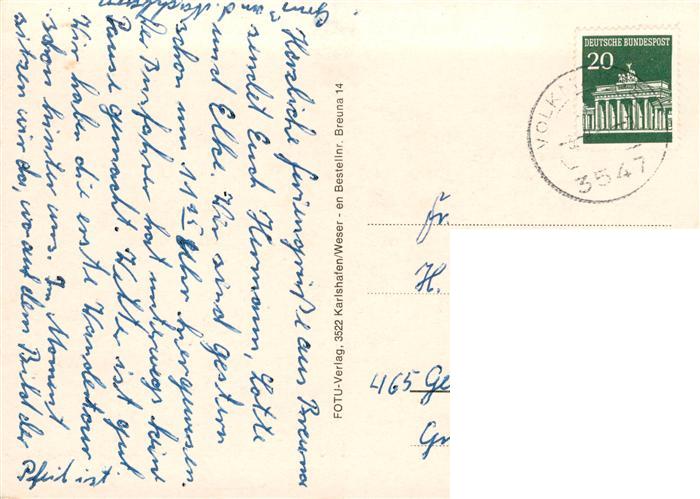 Herzliche Feriengrüße aus Breuna
sendet Euch Hermann, Lotte
und Elke. Wir sind gestern
schon um 11 Uhr hergewesen.
Der Busfahrer hat unterwegs keine
Pause gemacht. Wetter ist gut
Wir haben die erste Wandertour
schon hinter uns. Im Moment
sitzen wir da, wo auf dem Bild der
Pfeil ist.
Gern
FOTU-Verlag, 3522 Karlshafen/Weser - en Bestellnr. Breuna 14
DEUTSCHE BUNDESPOST
20
VOLKM
3547
Fr
H.
465 Ge
Gr